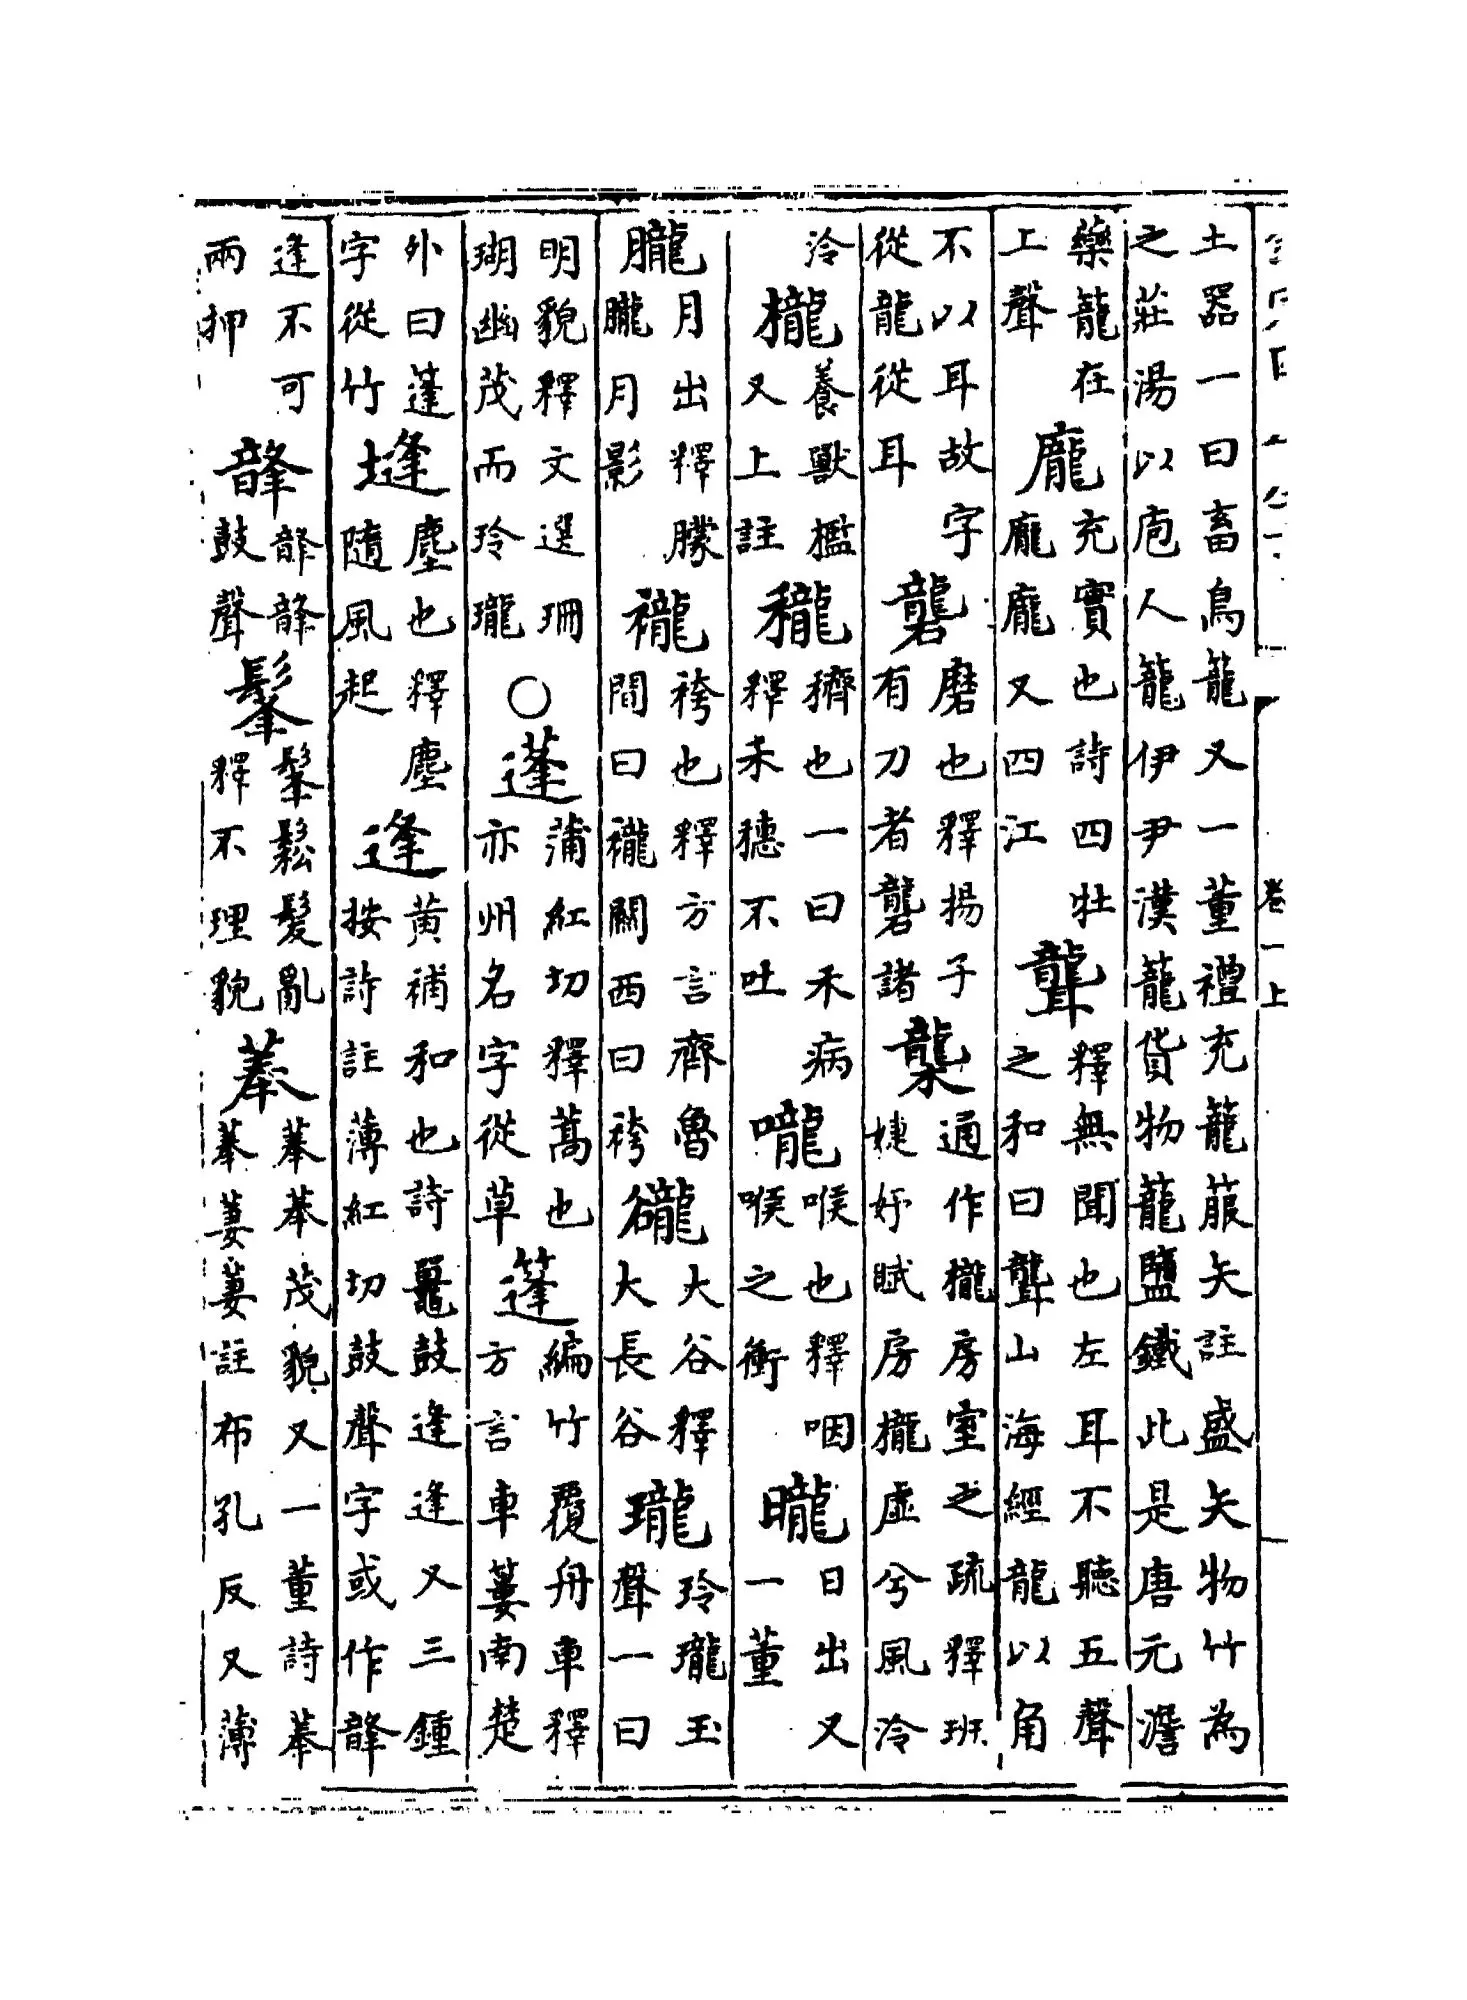 卷一上
土器一曰畜鳥籠又一董禮充籠箙矢註盛矢物竹為
之莊湯以庖人籠伊尹漢籠貨物籠鹽鐵此是唐元澹
藥籠在上聲 龐 充實也詩四牡龐龐又四江 聾 釋無聞也左耳不聽五聲之和曰聾山海經龍以角
不以耳故字從龍從耳 礱 磨也釋揚子有刀者礱諸 櫳 通作櫳房室之疏釋班婕妤賦房櫳虛兮風泠
泠 櫳 養獸檻又上註 䆍 穧也一曰禾病釋禾穗不吐 嚨 喉也釋咽喉之衝 曨 日出又一董
朧 月出釋朦朧月影 襱 袴也釋方言齊魯間曰襱關西曰袴 豅 大谷釋大長谷 瓏 玲瓏玉聲一曰
明貌釋文選珊瑚幽茂而玲瓏 ○ 蓬 蒲紅切釋蒿也亦州名字從草 篷 編竹覆舟車釋方言車簍南楚
外曰蓬字從竹 塳 塵也釋塵隨風起 逢 黃補和也詩鼉鼓逢逢又三鍾按詩註薄紅切鼓聲字或作韸
逢不可兩押 韸 韸韸鼓聲 髼 髼鬆髮亂釋不理貌 菶 菶菶茂貌又一董詩菶菶萋萋註布孔反又薄